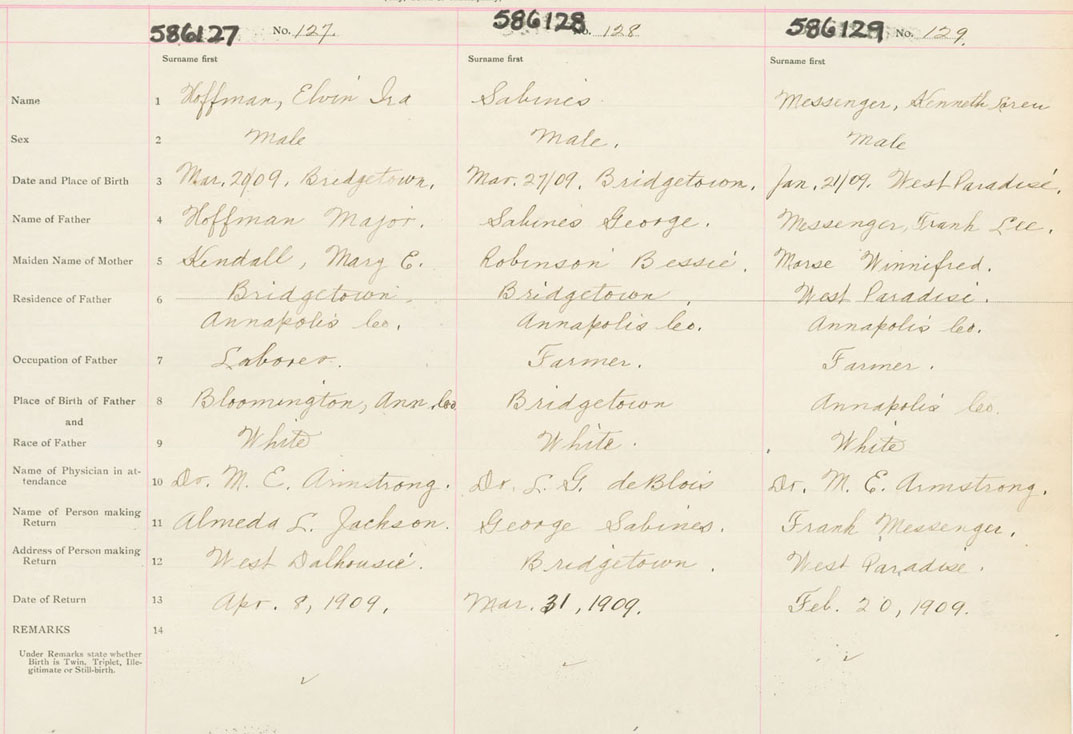 586127 No. 127. 586128 No. 128 586129 No. 129.
Surname first Surname first Surname first
Name 1 Hoffman, Elvin Ira Sabines Messenger, Kenneth
Sex 2 Male Male. Male
Date and Place of Birth 3 Mar. 09. Bridgetown. Mar. 27/09. Bridgetown. Jan. 21/09. West Paradise.
Name of Father 4 Hoffman Major. Sabines George. Messenger, Frank Lee.
Maiden Name of Mother 5 Kendall, Mary E. Robinson Bessie. Morse Winnifred.
Residence of Father 6 Bridgetown. Bridgetown. West Paradise.
Annapolis Co. Annapolis Co. Annapolis Co.
Occupation of Father 7 Laborer. Farmer. Farmer.
Place of Birth of Father 8 Bloomington, Ann. Co. Bridgetown Annapolis Co.
and
Race of Father 9 White White. White
Name of Physician in at-
tendance 10 Dr. M. E. Armstrong. Dr. L. G. deBlois Dr. M. E. Armstrong.
Name of Person making
Return 11 Almeda L. Jackson. George Sabines. Frank Messenger.
Address of Person making
Return 12 West Dalhousie. Bridgetown. West Paradise.
Date of Return 13 Apr. 8, 1909. Mar. 31, 1909. Feb. 20, 1909.
REMARKS 14
Under Remarks state whether
Birth is Twin, Triplet, Ille-
gitimate or Still-birth.